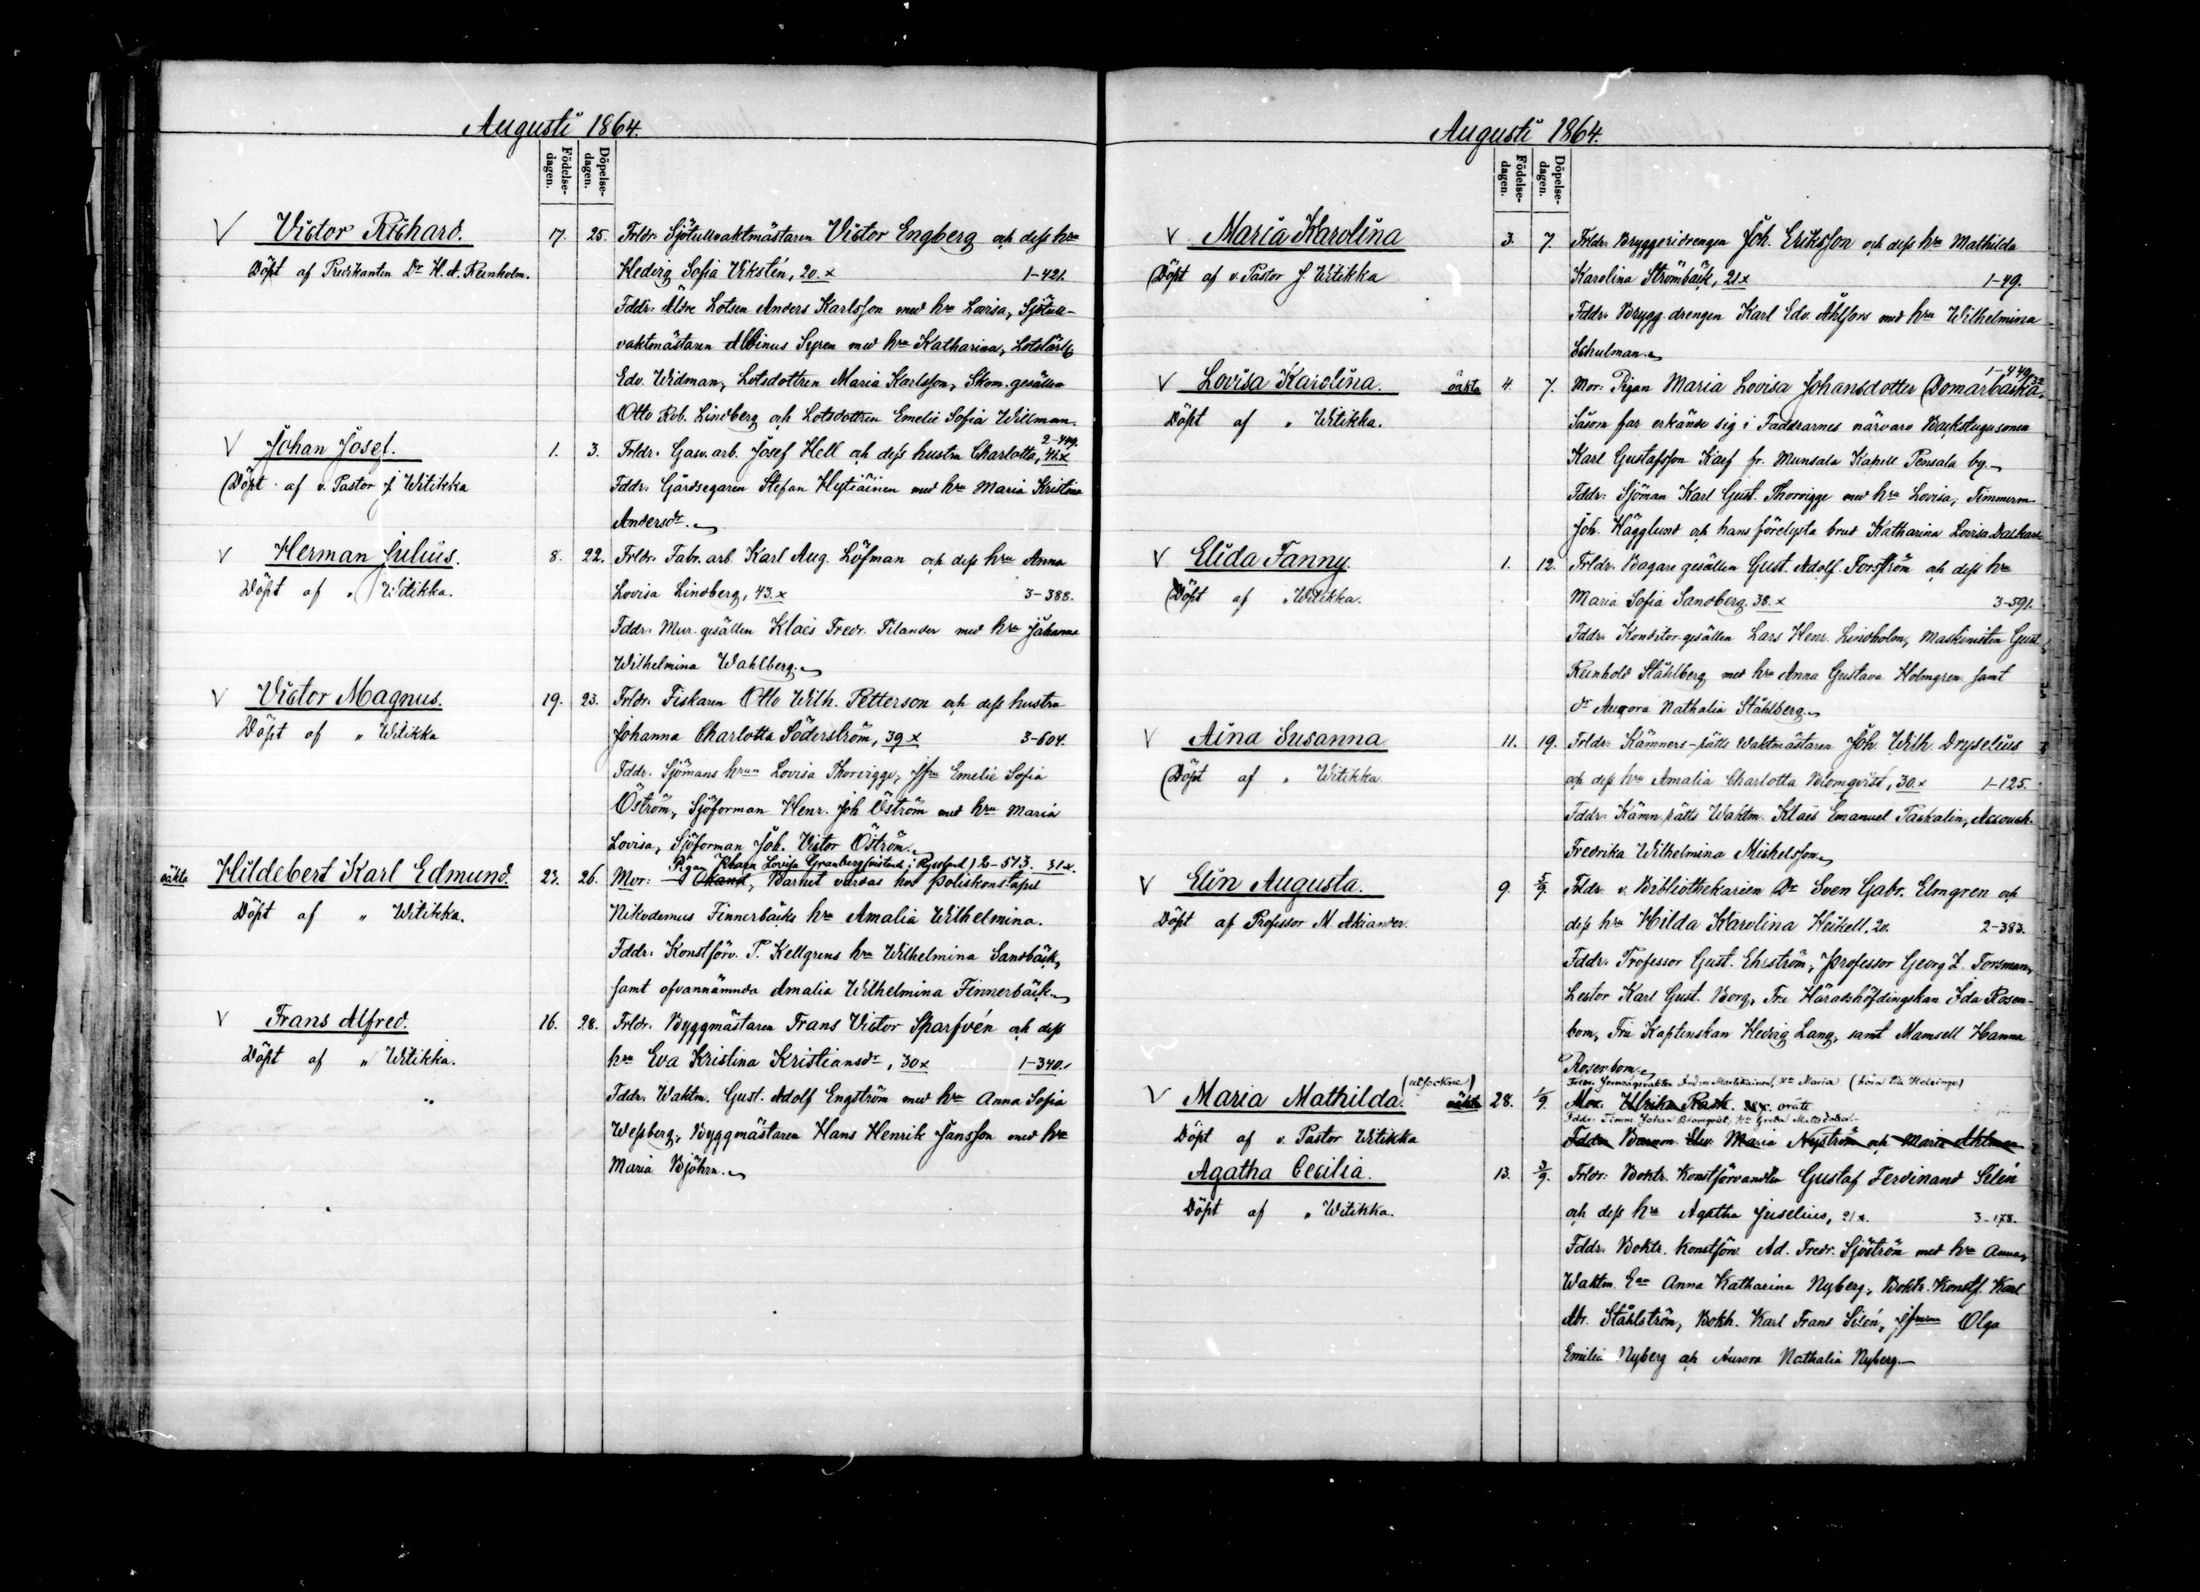 Augusti 1864.
Födelse-dagen.
Döpelse-dagen.
Victor Richard. 17. 25. Frldr. Sjötullvaktmästaren Victor Engberg och dess hru
Döpt af Predikanten Dr H. A. Reinholm. Hedvig Sofia Vikstén, 20.x 1-421.
Fddr: Äldre Lotsen Anders Karlsson med hru Lovisa, Sjötull-
vaktmästaren Albinus Syren med hru Katharina, Lotslärl.
Edv. Widman, Lotsdottren Maria Karlsson, Skom. gesällen
Otto Rob. Lindberg och Lotsdottren Emelie Sofia Willman.
2-449.
Johan Josef. 1. 3. Frldr. Gasv. arb. Josef Hell och dess hustru Charlotta, 41.x
Döpt af v. Pastor J. Witikka Fddr: Gårdsegaren Stefan Hytiäinen med hru Maria Kristina
Andersdr.
Herman Julius. 8. 22. Frldr. Fabr. arb. Karl Aug. Löfman och dess hru Anna
Döpt af " Witikka. Lovisa Lindberg, 43.x 3-388.
Fddr: Mur. gesällen Klaës Fredr. Tilander med hru Johanna
Wilhelmina Wahlberg.
Victor Magnus. 19. 23. Frldr. Fiskaren Otto Wilh. Petterson och dess hustru
Döpt af " Witikka Johanna Charlotta Söderström, 39 x 3-604.
Fddr. Sjömans hrun Lovisa Thorvigge, Jfru Emelie Sofia
Öström, Sjöforman Henr. Joh Öström med hru Maria
Lovisa, Sjöforman Joh. Victor Öström.
Pigan Johanna Lovisa Granberg (vistand. i Ryssland) 2-513. 31.x.
oäkta Hildebert Karl Edmund. 23. 26. Mor: Okänd, Barnet vårdas hos Poliskonstapel
Döpt af " Witikka. Nikodemus Finnerbäcks hru Amalia Wilhelmina.
Fddr: Konstförv. P. Kellgrens hru Wilhelmina Sandbäck,
samt ofvannämnda Amalia Wilhelmina Finnerbäck.
Frans Alfred. 16. 28. Frldr. Byggmästaren Frans Victor Sparfvén och dess
Döpt af " Witikka. hru Eva Kristina Kristiansdr, 30x 1-340.
Fddr: Waktm. Gust. Adolf Engström med hru Anna Sofia
Wessberg, Byggmästaren Hans Henrik Jansson med hru
Maria Björn.
Augusti 1864.
Födelse-dagen.
Döpelse-dagen.
Maria Karolina 3. 7. Frldr. Bryggeridrengen Joh. Eriksson och dess hru Mathilda
Döpt af v. Pastor J. Witikka Karolina Strömbäck, 21.x 1-49.
Fddr: Brygg. drengen Karl Edv. Åhlfors med hru Wilhelmina
Schulman.
1-449
Lovisa Karolina. oäkta 4. 7. Mor: Pigan Maria Lovisa Johansdotter Domarbacka, 32
Döpt af " Witikka. Såsom far erkände sig i Faddrarnes närvaro Backstugusonen
Karl Gustafsson Kaef fr. Munsala Kapell Pensala by.
Fddr: Sjöman Karl Gust. Thorvigge med hru Lovisa, Timmerm.
Joh. Hägglund och hans förelysta brud Katharina Lovisa Dalkarl
Elida Fanny. 1. 12. Frldr. Bagare gesällen Gust. Adolf Forsström och dess hru
Döpt af " Witikka. Maria Sofia Sandberg. 38.x 3-591.
Fddr: Konditor gesällen Lars Henr. Lindholm, Maskinisten Gust.
Reinhold Ståhlberg med hru Anna Gustava Holmgren samt
dr Aurora Nathalia Ståhlberg.
Aina Susanna 11. 19. Frldr. Kämners-rätts Waktmästaren Joh. Wilh. Dryselius
Döpt af " Witikka och dess hru Amalia Charlotta Blomqvist, 30.x 1-125.
Fddr: Kämn rätts Waktm. Klaës Emanuel Paskalin, Accouch.
Fredrika Wilhelmina Michelsson.
Elin Augusta. 9. 5/9. Frldr. v. Bibliothekarien Dr Sven Gabr. Elmgren och
Döpt af Professor M. Akiander. dess hru Hilda Karolina Heikell, 20. 2-383.
Fddr. Professor Gust. Ehrström, Professor Georg Z. Forsman,
Lector Karl Gust. Borg, Fru Häradshöfdingskan Ida Rosen-
bom, Fru Kaptenskan Hedvig Lang, samt Mamsell Hanna
Rosenbom.
Maria Mathilda. oäkta 28. 1/9. Mor. Ulrika Rask. 28x.
Döpt af v. Pastor Witikka Fddr: Timm. Johan Blomqvist, Greta Mattsdotter.
Fddr Barnm. Elev. Maria Nyström och Maria Ahlman
Agatha Cecilia. 13. 3/9. Frldr: Boktr. Konstförvandten Gustaf Ferdinand Silén
Döpt af " Witikka. och dess hru Agatha Juselius, 21x. 3-178.
Fddr. Boktr. konstförv. Ad. Fredr. Sjöström med hru Anna,
Waktm. Ean Anna Katharina Nyberg, Boktr. Konstf. Karl
Abr. Ståhlström, Bokh. Karl Frans Silén, Jfrurna Olga
Emilia Nyberg och Aurora Nathalia Nyberg.